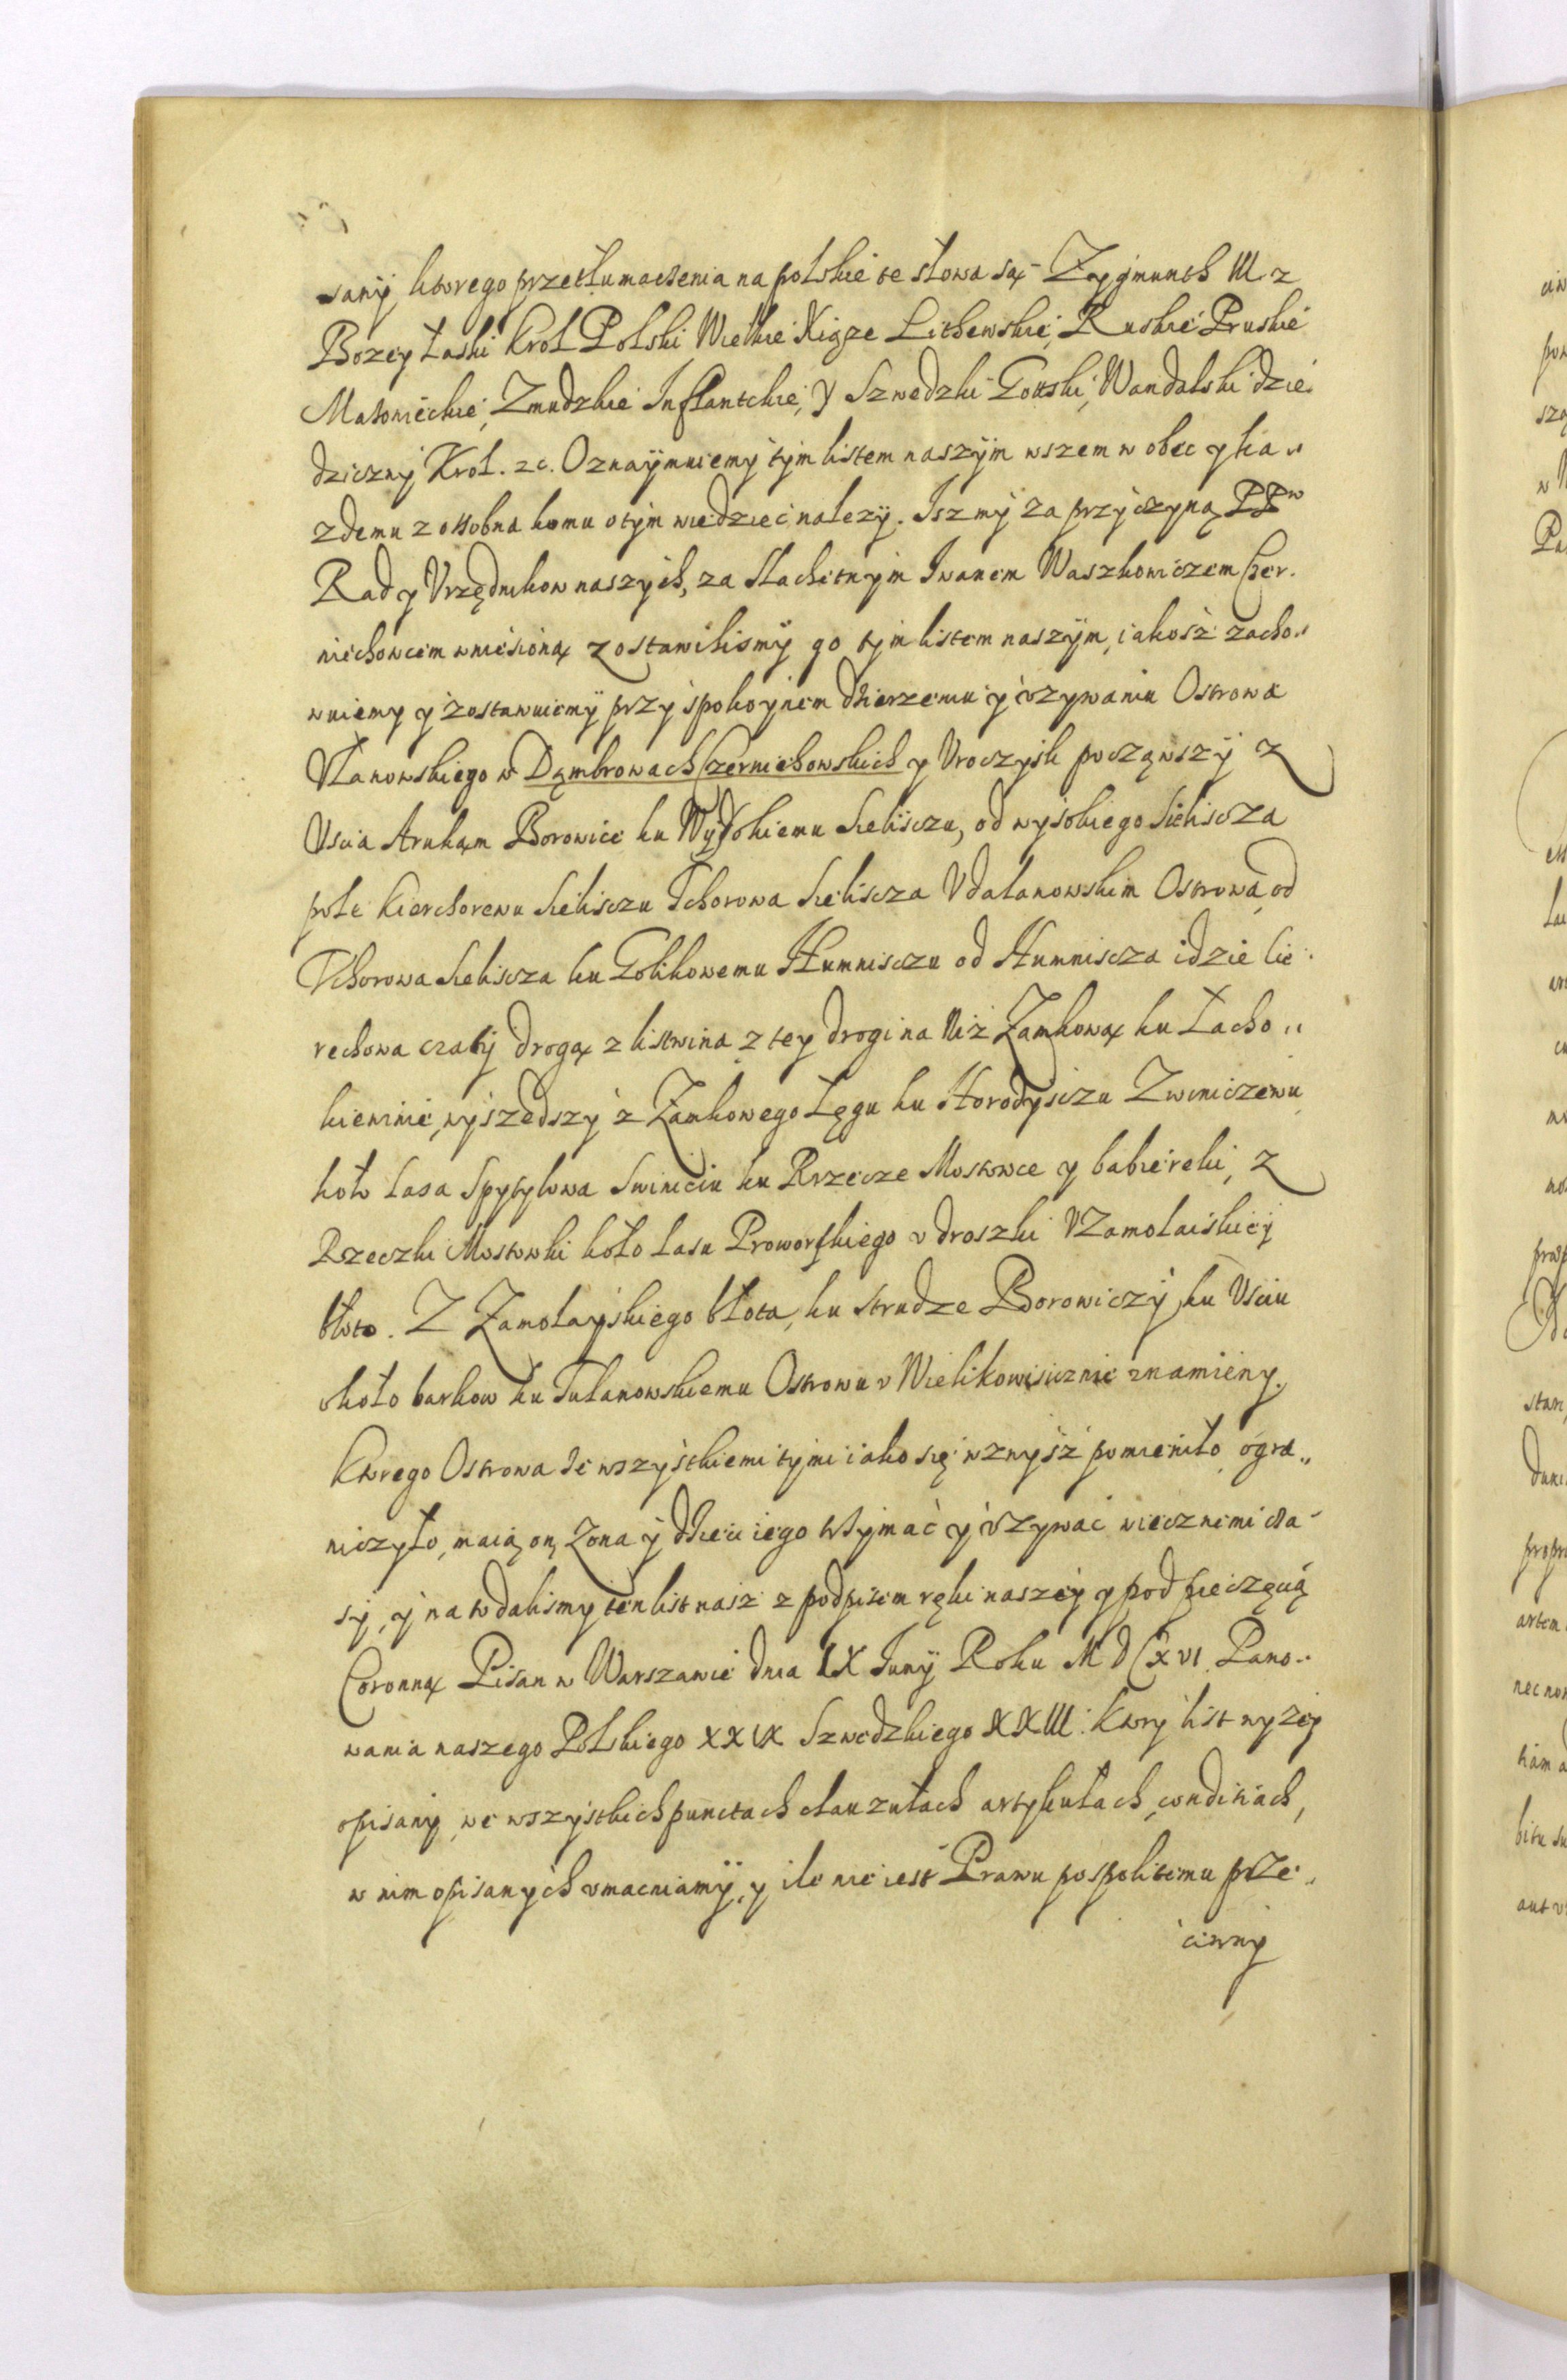 sany, ktorego przetłumaczenia na polskie te słowa są Zygmunth III z
Bozey Łaski Krol Polski Wielkie Xiąze Lithewskie, Ruskie Pruskie
Mazowieckie, Zmudzkie Inflantckie, y Szwedzki Gottski, Wandalski dzie-
dziczny Krol. zc. Oznaymuiemy tym listem naszym wszem w obec y ka„
zdemu z ossobna komu o tym wiedziec nalezy. Isz my za przyczyną PPw
Rad y Vrzędnikow naszych, za Slachetnym Iwanem Waszkowiczem Czer-
niechowcem wniesioną zostawilismy go tym listem naszym, iakosz zacho„
wuiemy y zostawuiemy przy spokoynem dzierzeniu y vzywaniu Ostrowa
Vlanowskiego w Dąmbrowach Czerniechowskich y Vroczysk począwszy z
Vscia Arukam Borowice ku Wysokiemu Sieliszczu, od wysokiego Sieliscza
pole Kierchorewu Sielisczu Tchorowa Sieliscza Vdalanowskim Ostrowa, od
Tchorowa Sieliscza ku Golikowemu Humnisczu od Humniscza idzie Cie-
rechowa czały drogą z listwina z tey drogi na Niz Zamkową ku Łacho„
kiewinie, wyszedszy z Zamkowego Łęgu ku Horodysczu Zwiniczewu
koło Lasa Spytylowa Swinciu ku Rzecze Mostowce y babie reki, z
Rzeczki Mostowki koło Lasu Proworskiego v droszki VZamołaiskiey
błoto. Z Zamołayskiego błota, ku strudze Borowiczy, ku Vsciu
około barkow ku Tulanowskiemu Ostrowu v Wielikowisicznie znamieny.
Ktorego Ostrowa ze wszystkiemi tymi iako się wzwysz pomieniło, ogra„
niczyło, maią on, Zona y dzieci iego trzymać y vzywać wiecznemi cza-
sy, y na to dalismy ten list nasz z podpisem ręki naszey y pod pieczęcią
Coronną Pisan w Warszawie dnia IX Iuny Roku MDCXVI. Pano-
wania naszego Polskiego XXIX Szwedzkiego XXIII. Ktory list wyzey
opisany, we wszystkich punctach clauzułach artykułach, conditiach,
w nim opisanych vmacniamy, y ile nie iest Prawu pospolitemu prze„
ciwny